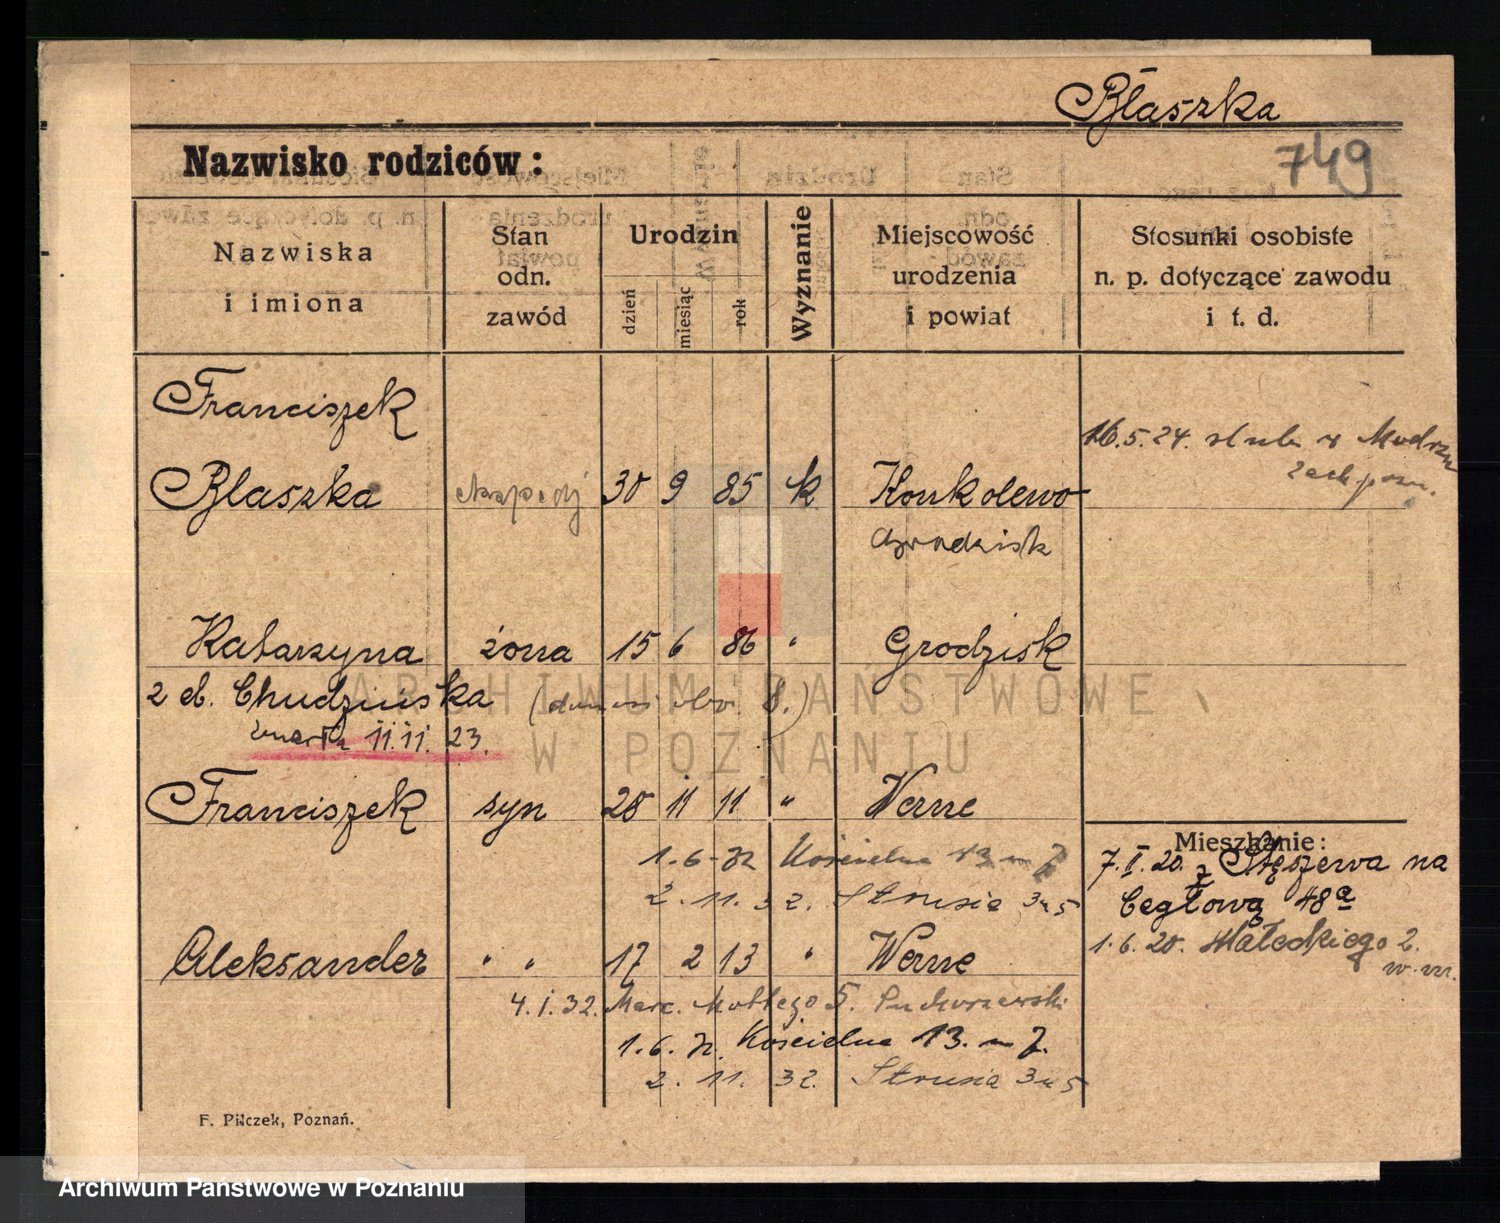 Błaszka
749
Nazwisko rodziców:
Nazwiska i imiona
Stan odn. zawód
Urodzin
dzień
miesiąc
rok
Wyznanie
Miejscowość urodzenia i powiat
Stosunki osobiste n. p. dotyczące zawodu i t. d.
Franciszek
16.5.24. ślub w
Błaszka 30 9 85 k Konkolewo
Grodzisk
Katarzyna żona 15 6 86 " Grodzisk
2 d. Chudzińska
zmarła 11.11.23.
Franciszek syn 28 11 11 " Werne
Mieszkanie:
1.6.32 Kościelna 13 m 7
7.I.20. z Stęszewa na
2.11.32. Strusia 3 m 5
Cegłową 48a
Aleksander " " 17 2 13 " Werne
1.6.20. Małeckiego 2.
4.I.32. Marc. Mottego 5.
1.6.32. Kościelna 13. m 7.
2. 11. 32. Strusia 3 m 5
F. Pilczek, Poznań.
ARCHIWUM PAŃSTWOWE
W POZNANIU
Archiwum Państwowe w Poznaniu